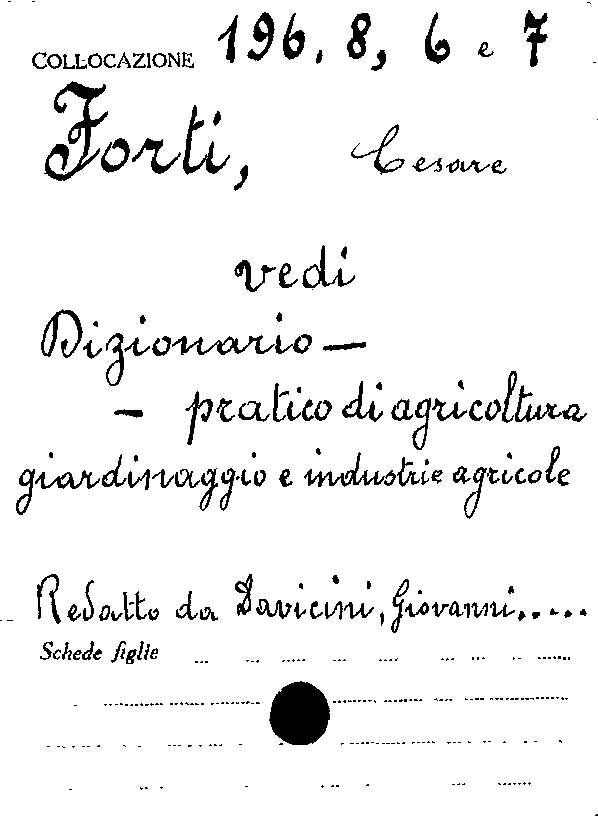 COLLOCAZIONE 196. 8, 6 e 7
Forti, Cesare
vedi
Dizionario —
— pratico di agricoltura
giardinaggio e industrie agricole
Redatto da Davicini, Giovanni.....
Schede figlie